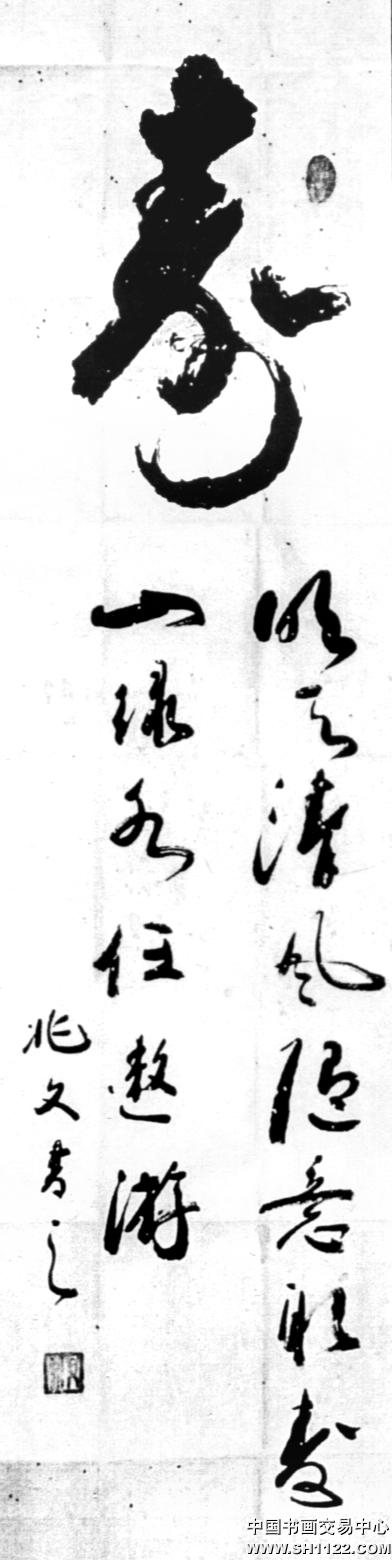 寿
明月清风随意取青
山绿水任遨游
兆文書之
中国书画交易中心
www.SH1122.com